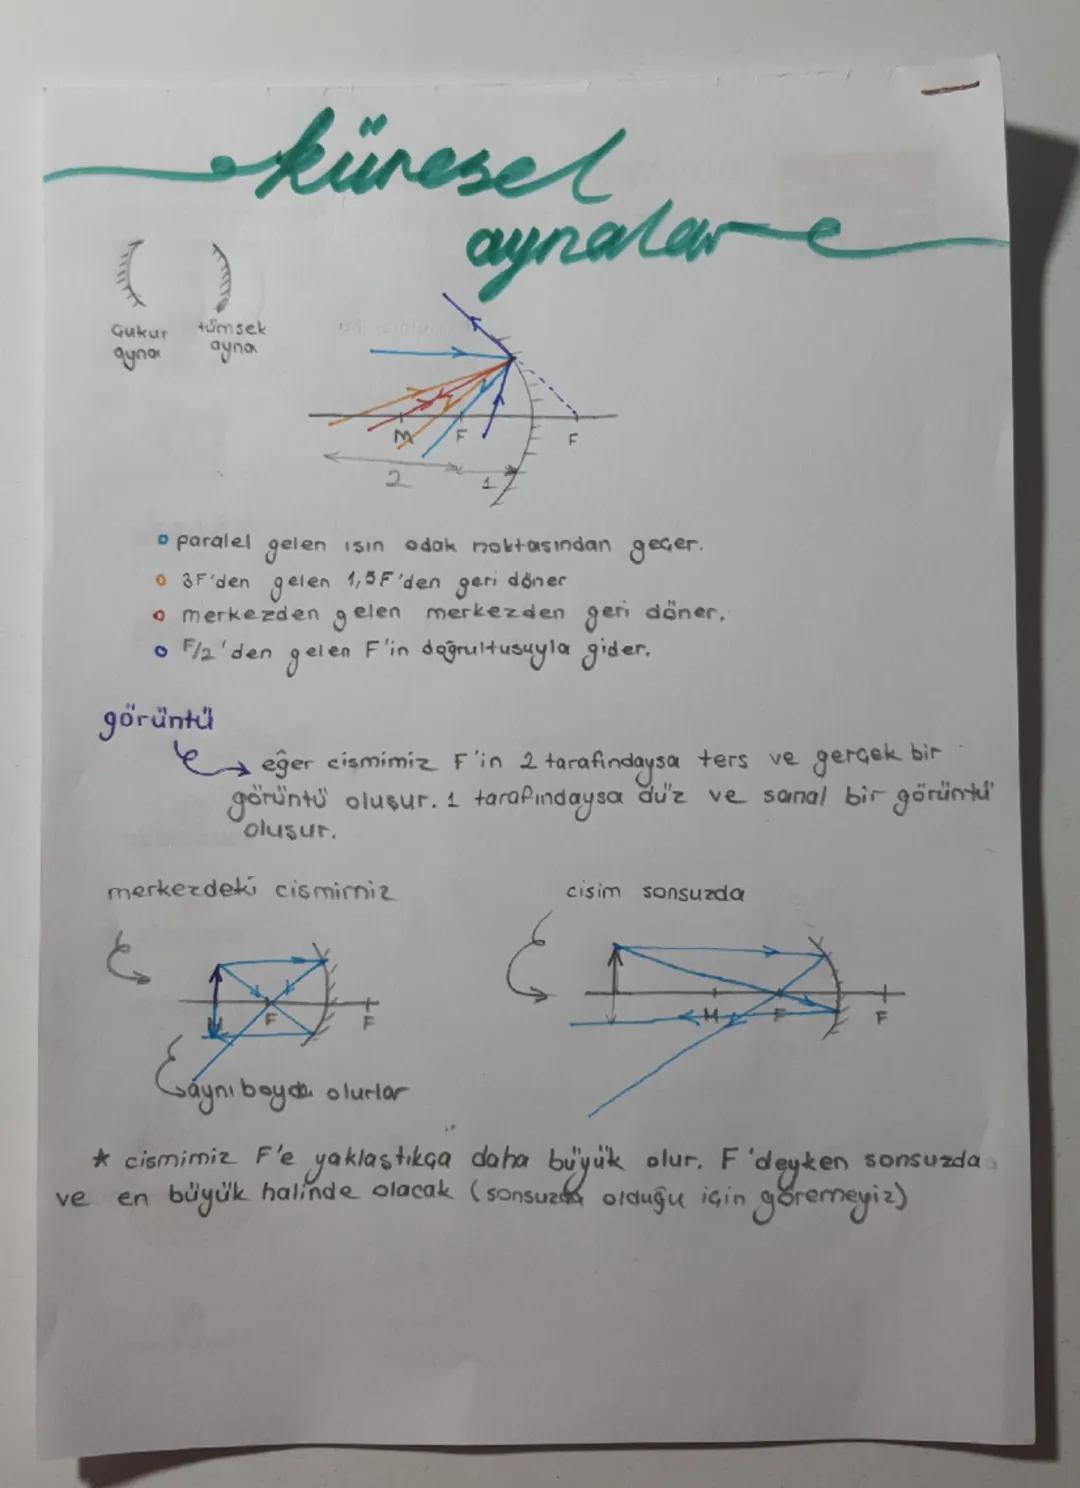 küresel
aynalar
Çukur
ayna
tümsek
ayna
M F F
2 1
paralel gelen ışın odak noktasından geçer.
3F'den gelen 1,5F'den geri döner
merkezden gelen merkezden geri döner.
F/2'den gelen F'in doğrultusuyla gider.
görüntü
eğer cismimiz F'in 2 tarafındaysa ters ve gerçek bir
görüntü oluşur. 1 tarafındaysa düz ve sanal bir görüntü
oluşur.
merkezdeki cismimiz
cisim sonsuzda
M F F
M F F
aynı boyda olurlar
* cismimiz F'e yaklaştıkça daha büyük olur. F'deyken sonsuzda
ve en büyük halinde olacak (sonsuzda olduğu için göremeyiz)